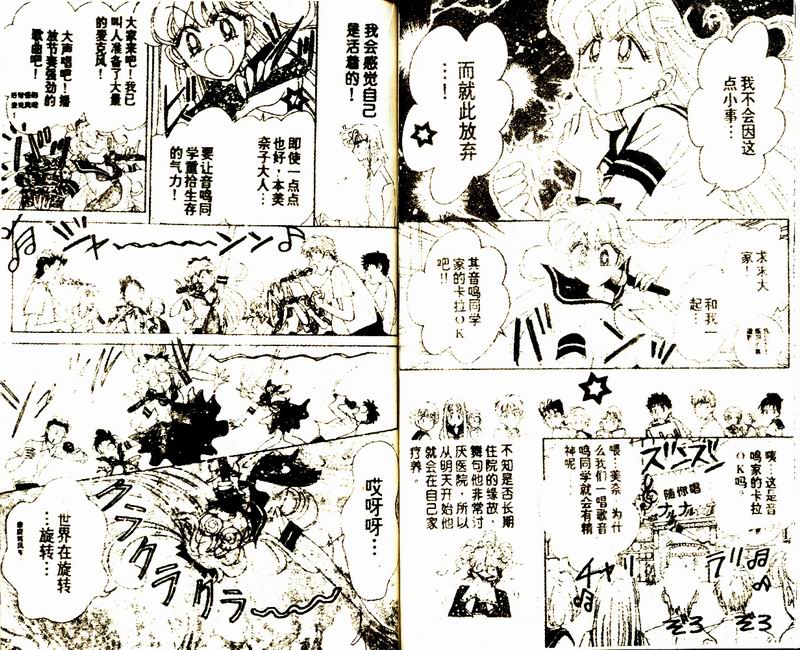 我不会因这
点小事…
而就此放弃
…！
求求大
家！
和我一
起…
其音鸣同学
家的卡拉OK
吧!!
咦…这是音
鸣家的卡拉
OK吗？
喂…美奈，为什
么我们一唱歌音
鸣同学就会有精
神呢
ズンズン
随你唱
チャ
ぞろ
ぞろ
不知是否长期
住院的缘故，
舞句他非常讨
厌医院，所以
从明天开始他
就会在自己家
疗养
我会感觉自己
是活着的！
即使一点点
也好，本美
奈子大人…
要让音鸣同
学重拾生存
的气力！
大家来吧！我已
叫人准备了大量
的麦克风！
大声唱吧！播
放节奏强劲的
歌曲吧！
ジャ～～ンン♪
哎呀呀…
グラグラ
グラグラ
世界在旋转
…旋转…